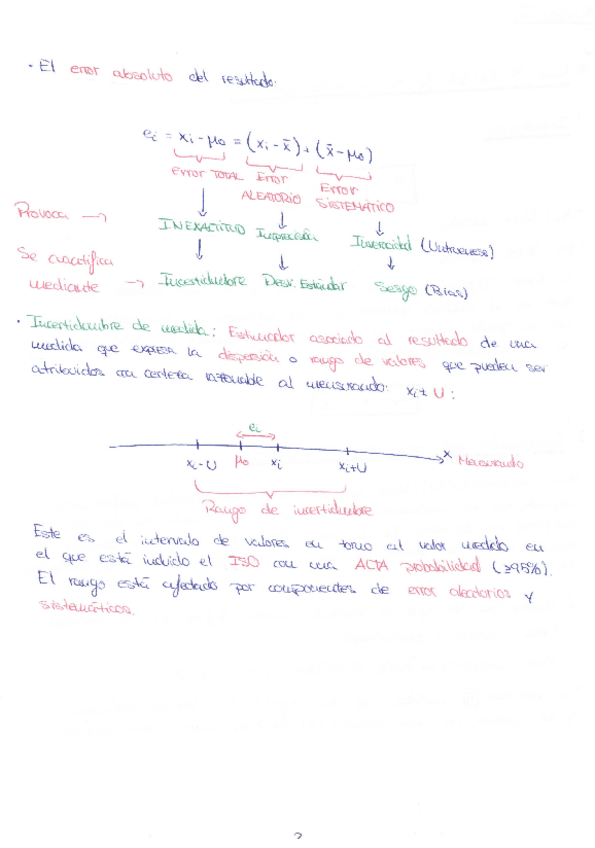 · El error absoluto del resultado:
ei = xi - μo = (xi - x̄) + (x̄ - μo)
error TOTAL Error Error
ALEATORIO SISTEMÁTICO
Provoca → INEXACTITUD Imprecisión Inveracidad (Untrueness)
Se cuantifica
mediante → Incertidumbre Desv. Estándar Sesgo (Bias)
· Incertidumbre de medida: Estimador asociado al resultado de una
medida que expresa la dispersión o rango de valores que pueden ser
atribuidos con certeza razonable al mensurando: xi ± U:
ei
xi - U μo xi xi+U x Mensurando
Rango de incertidumbre
Este es el intervalo de valores en torno al valor medido en
el que está incluido el ISO con una ALTA probabilidad (≥95%).
El rango está afectado por componentes de error aleatorios y
sistemáticos.
2